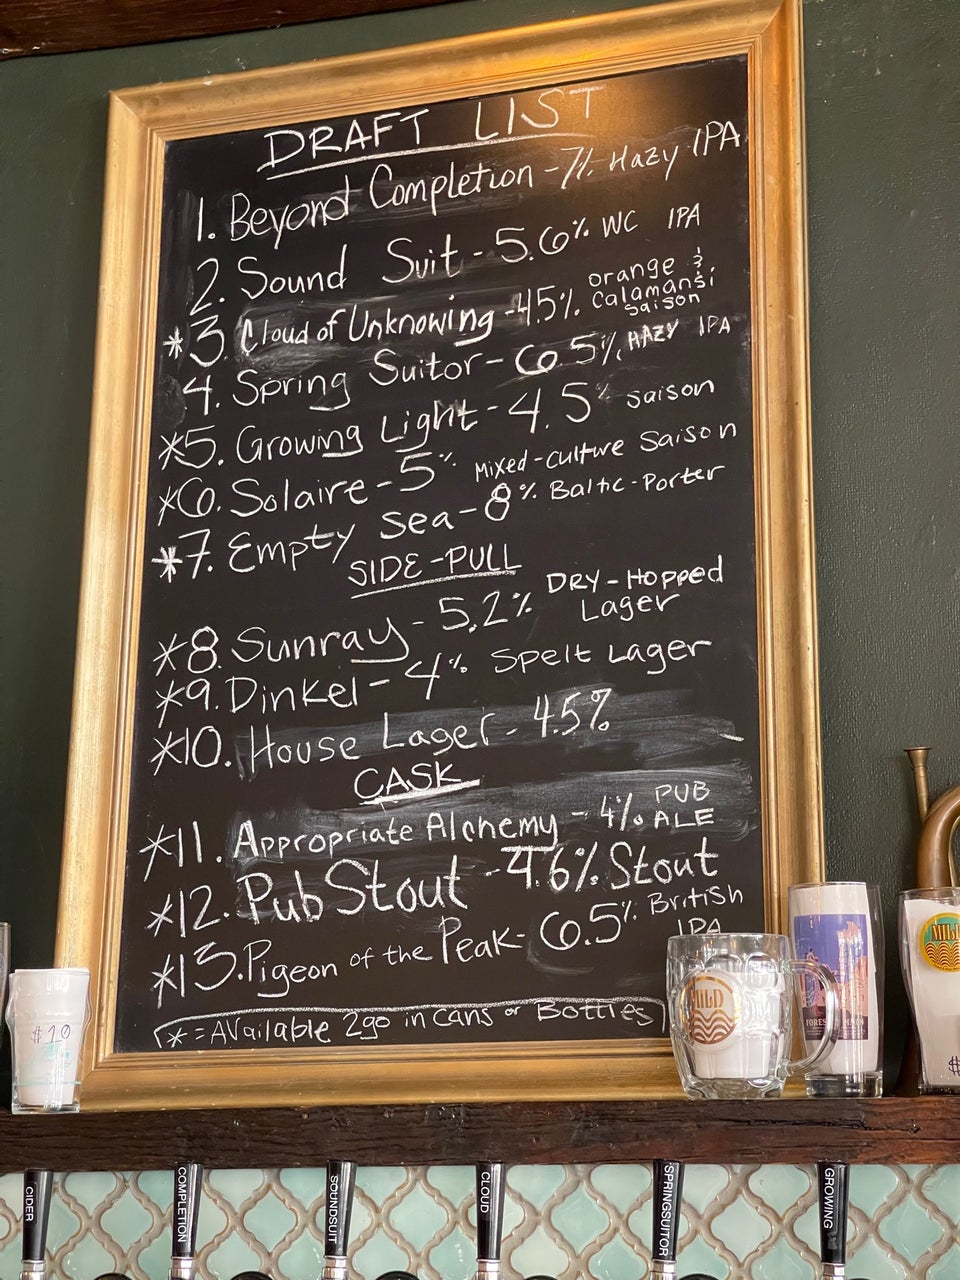 DRAFT LIST
1. Beyond Completion - 7% Hazy IPA
2. Sound Suit - 5.6% WC IPA
*3. Cloud of Unknowing - 4.5% orange & Calamansi saison
4. Spring Suitor - 6.5% HAZY IPA
*5. Growing Light - 4.5% saison
*6. Solaire - 5% Mixed-culture Saison
*7. Empty Sea - 8% Baltic-Porter
SIDE-PULL
*8. Sunray - 5.2% DRY-HOPPED Lager
*9. Dinkel - 4% Spelt Lager
*10. House Lager - 4.5%
CASK
*11. Appropriate Alchemy - 4% PUB ALE
*12. Pub Stout - 4.6% Stout
*13. Pigeon of the Peak - 6.5% British IPA
* = Available 2go in cans or Bottles
$10
MILD
MILD
$
CIDER
COMPLETION
SOUNDSUIT
CLOUD
SPRINGSUITOR
GROWING